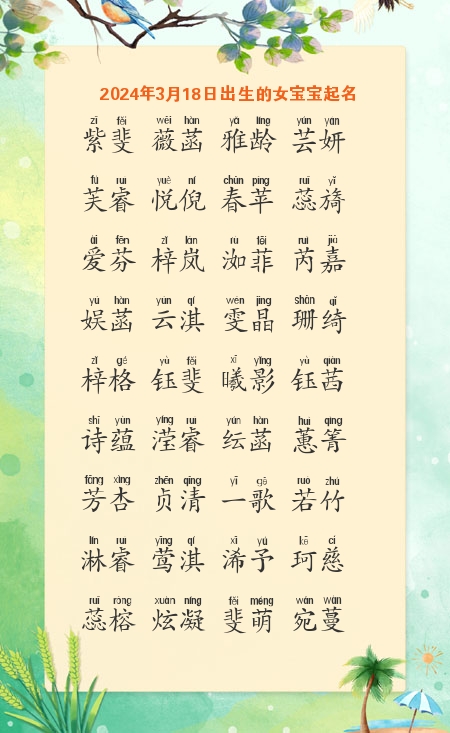 2024年3月18日出生的女宝宝起名
zǐ fěi wēi hàn yǎ líng yún yán
紫斐 薇菡 雅龄 芸妍
fú ruì yuè ní chūn píng ruǐ yǐ
芙睿 悦倪 春苹 蕊旖
ài fēn zǐ lán rù fěi ruì jiā
爱芬 梓岚 洳菲 芮嘉
yú hàn yún qí wén jīng shān qǐ
娱菡 云淇 雯晶 珊绮
zǐ gé yù fěi xī yǐng yù qiàn
梓格 钰斐 曦影 钰茜
shī yùn yíng ruì yún hàn huì qìng
诗蕴 滢睿 纭菡 蕙箐
fāng xìng zhēn qīng yī gē ruò zhú
芳杏 贞清 一歌 若竹
lín ruì yīng qí xī yú kē cí
淋睿 莺淇 浠予 珂慈
ruǐ róng xuàn níng fěi méng wǎn wàn
蕊榕 炫凝 斐萌 宛蔓